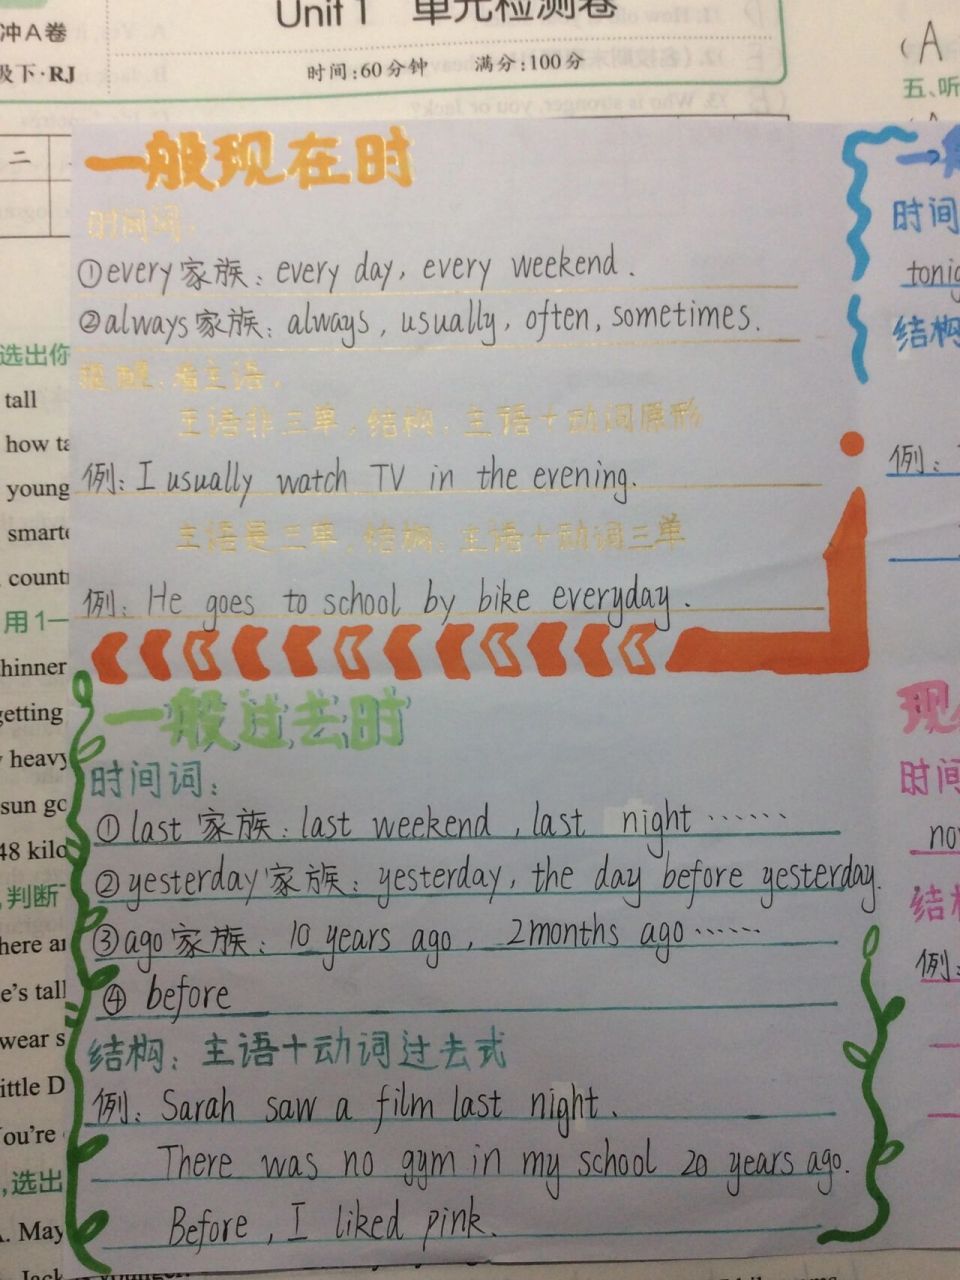 冲A卷
级下·RJ
Unit 1 单元检测卷
时间:60分钟 满分:100分
二
选出你
tall
how ta
young
smarte
count
用1一
thinner
getting
heavy
sun go
48 kilo
判断
here a
e's tall
wear s
ittle D
You're
选出
A. May
(A
五、听
一般现在时
时间词:
①every家族: every day, every weekend.
②always家族: always, usually, often, sometimes.
提醒:看主语,
主语非三单,结构:主语+动词原形
例:I usually watch TV in the evening.
主语是三单,结构:主语+动词三单
例:He goes to school by bike everyday.
一般过去时
时间词:
①last 家族:last weekend ,last night ······
②yesterday家族: yesterday, the day before yesterday.
③ago家族: 10 years ago, 2months ago······
④ before
结构:主语+动词过去式
例: Sarah saw a film last night.
There was no gym in my school 20 years ago.
Before, I liked pink.
一般
时间
tonig
结构
例:
现
时间
now
结构
例: